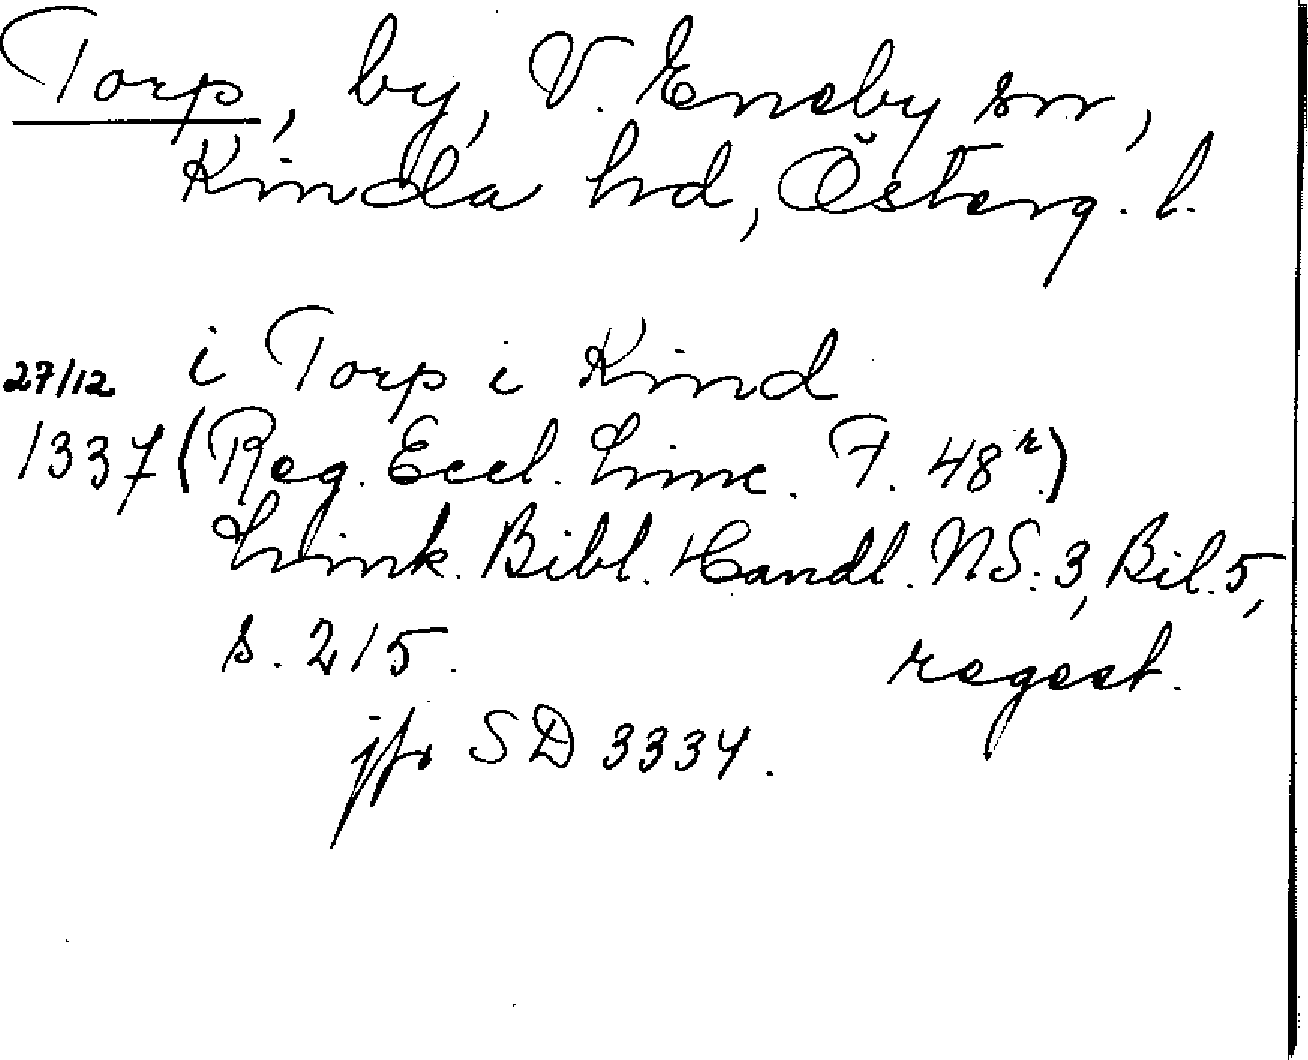 Torp, by, V. Eneby sn,
Kinda hd, Österg. l.
27/12 i Torp i Kind
1337 (Reg. Eccl. Linc. F. 48r.)
Link. Bibl. Handl. NS. 3, Bil. 5,
s. 215. regest.
jfr SD 3334.